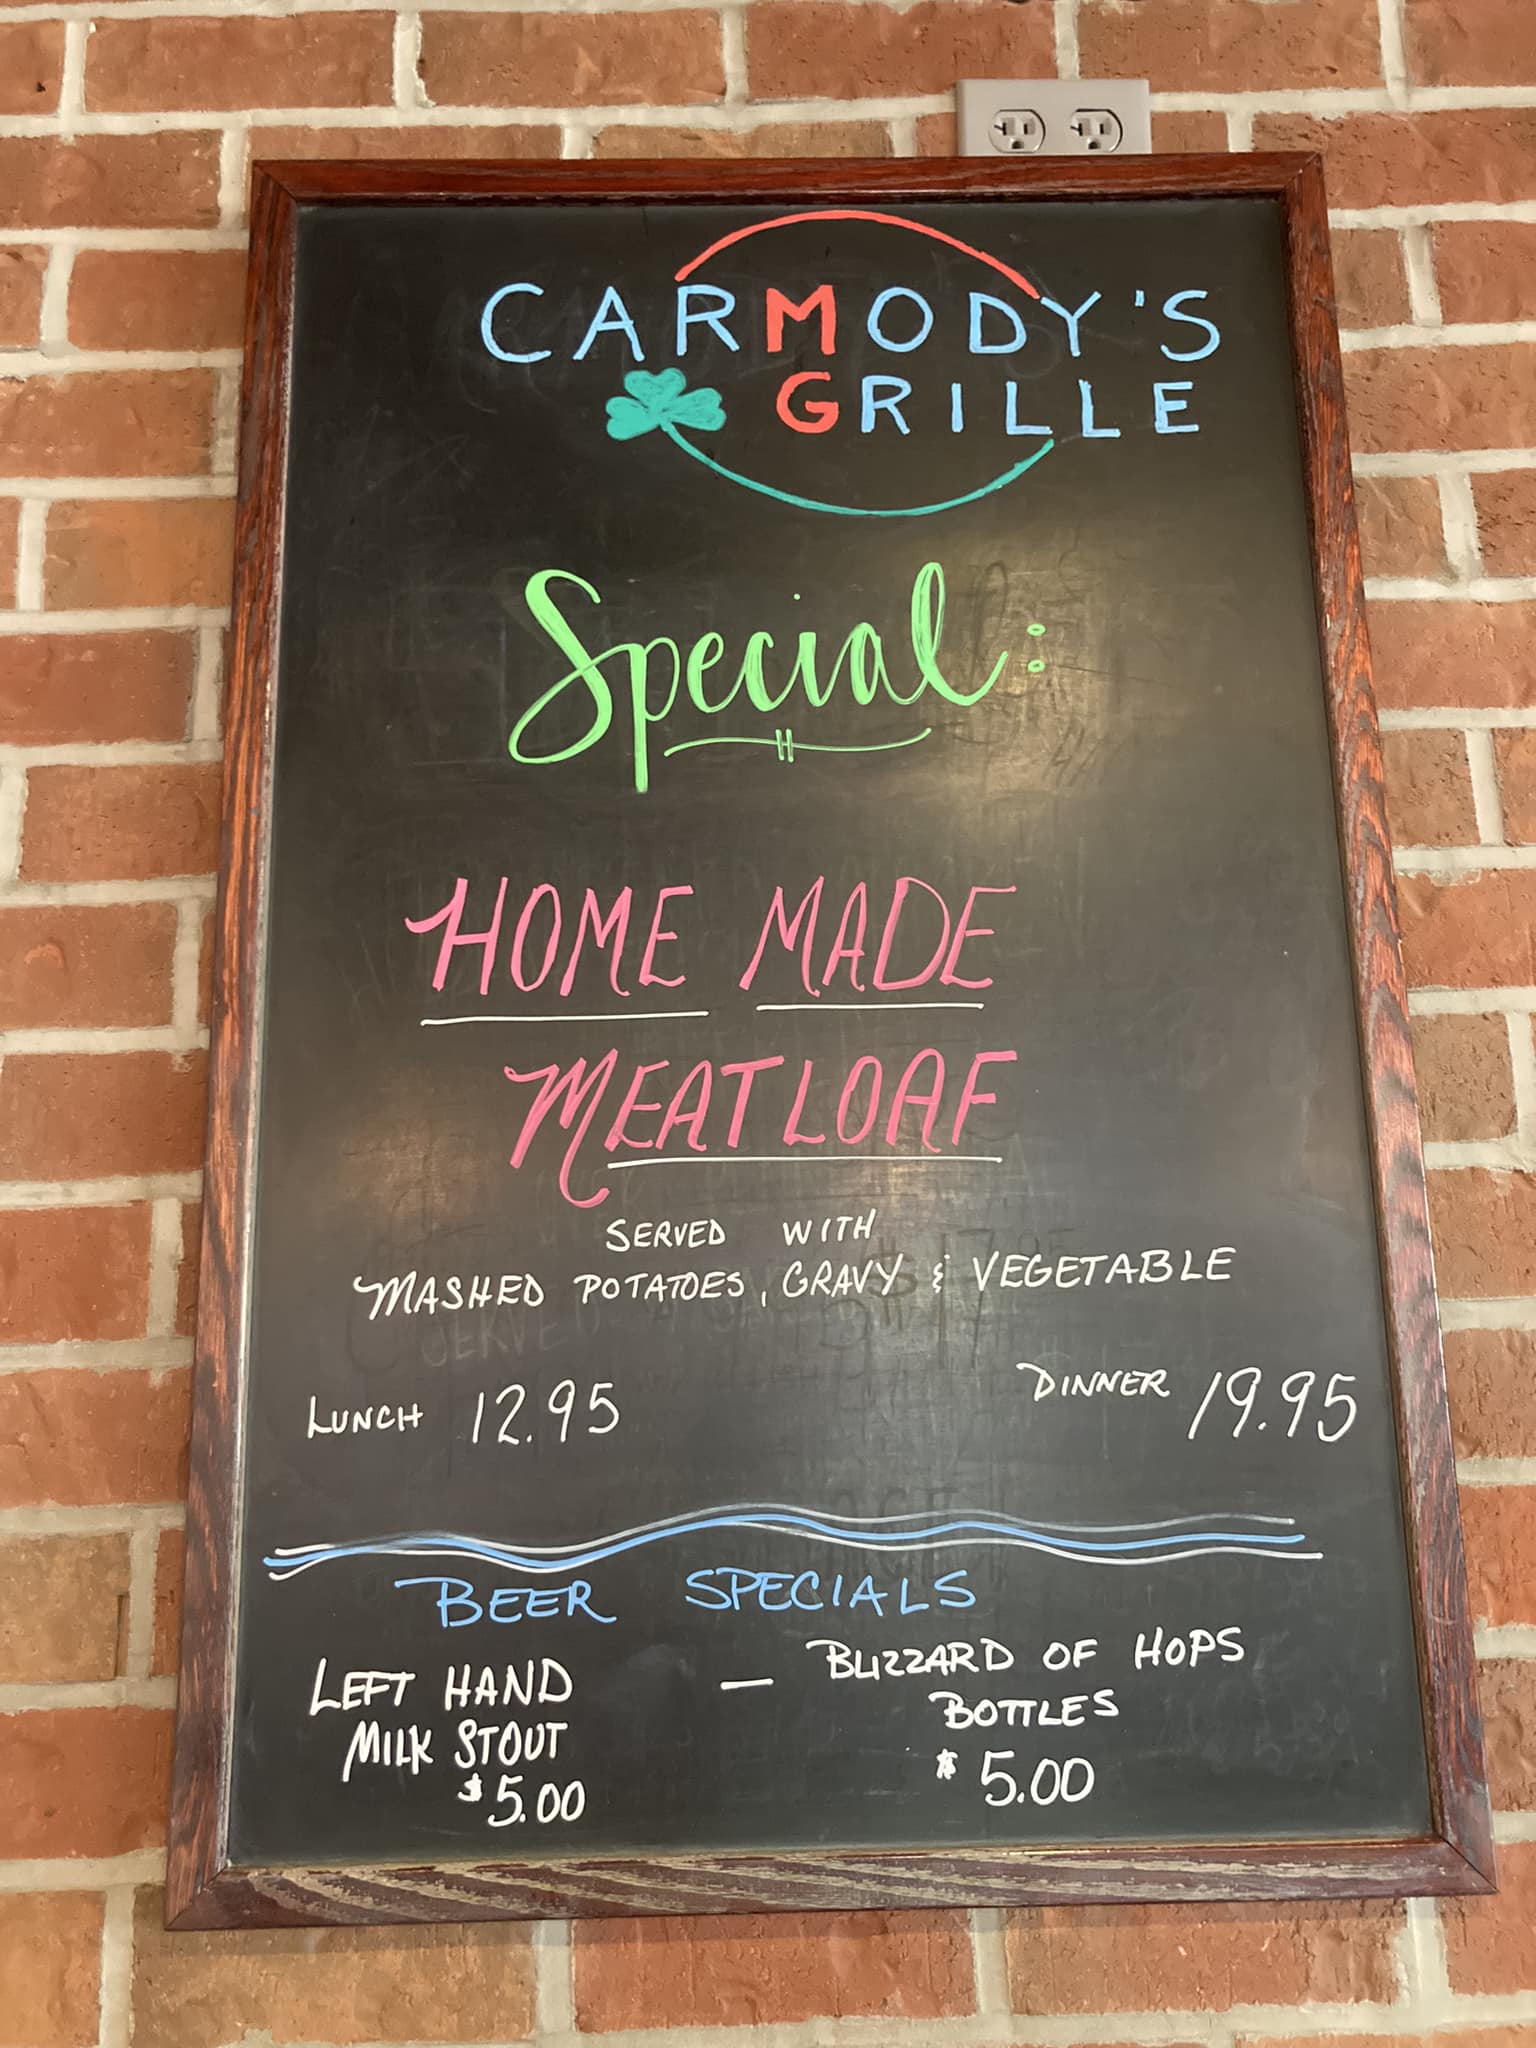 CARMODY'S
GRILLE
Special:
HOME MADE
MEATLOAF
SERVED WITH
MASHED POTATOES, GRAVY & VEGETABLE
LUNCH 12.95
DINNER 19.95
BEER SPECIALS
LEFT HAND
MILK STOUT
$5.00
— BLIZZARD OF HOPS
BOTTLES
$5.00